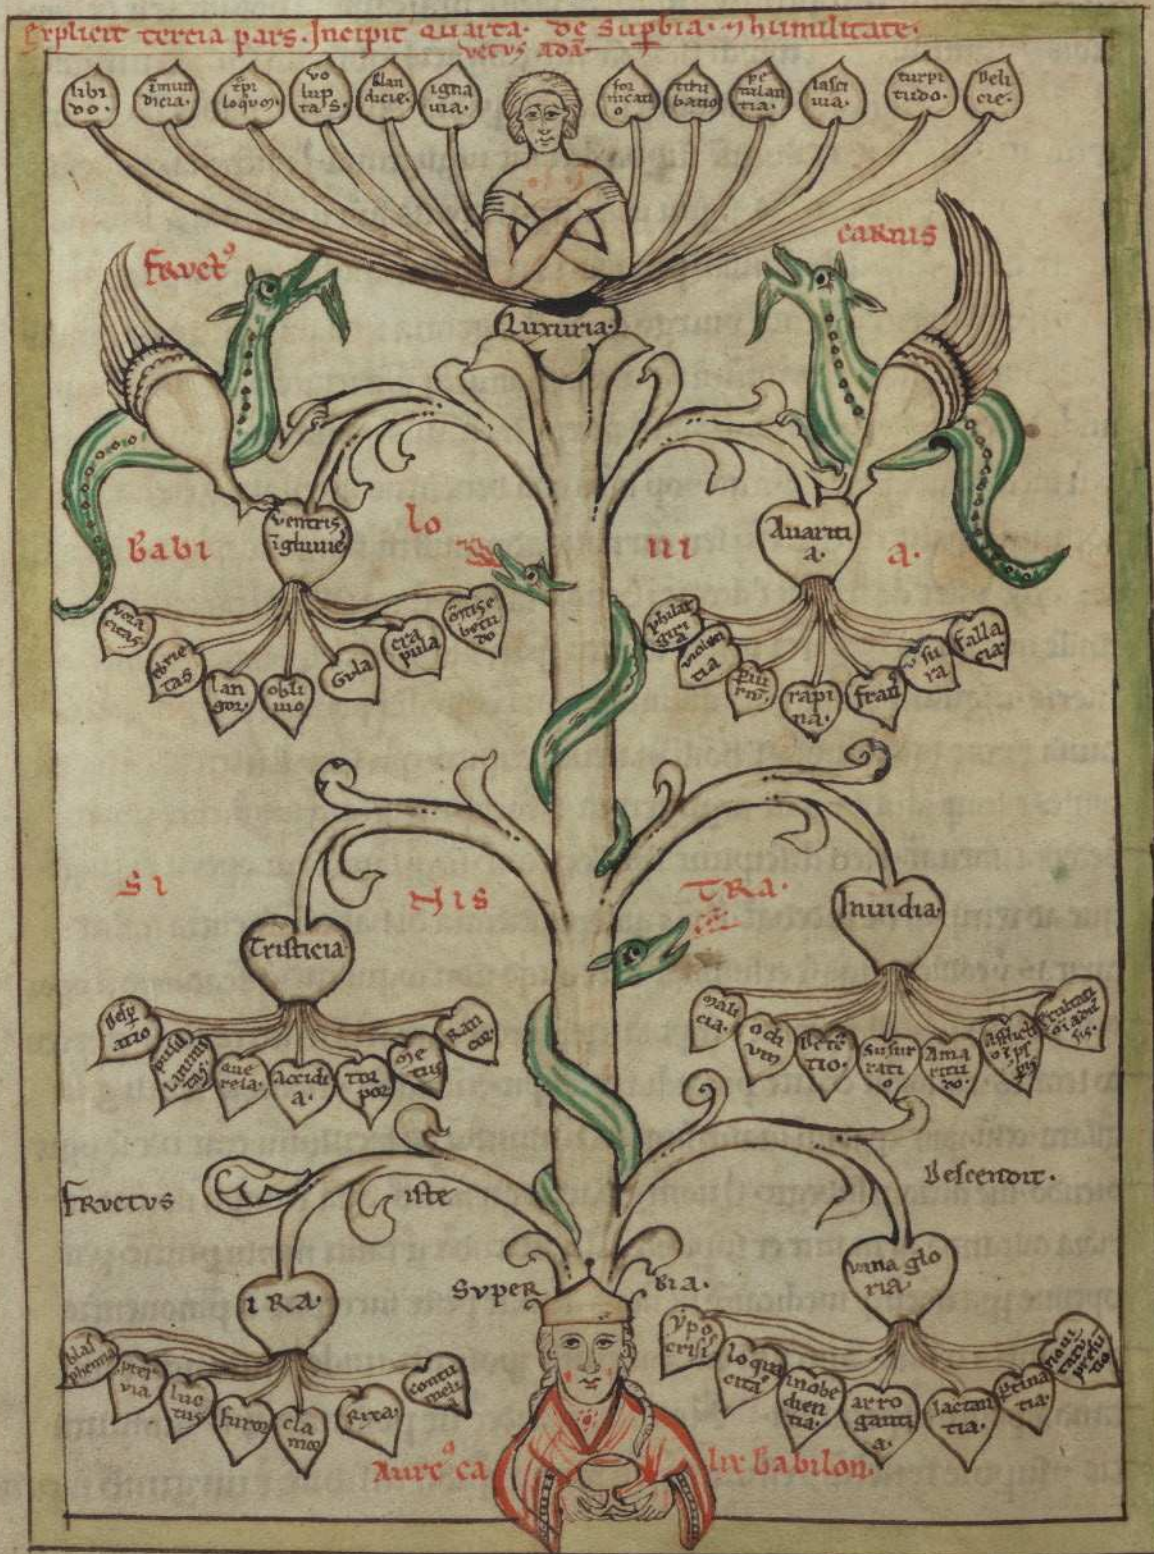 Explicit tercia pars. Incipit quarta. de Supbia. ⁊ humilitate.
vetus adā
libi
do.
īmun
dicia.
t̄pi
loquiū.
vo
lup
tas.
blan
dicie.
igna
uia.
for
nicati
o
titu
batio
pe
tulan
tia.
lasci
uia.
turpi
tudo.
Deli
cie.
fruct⁹
carnis
Luxuria.
ventris
īgluuie
Auariti
a.
Babi
lo
ni
a.
vora
citas.
ebrie
tas
lan
gor.
obli
uio
Gula
cra
pula
philar
giri
a
violen
tia
piu
riū.
rapi
na.
frau⁹
vsu
ra
falla
cia.
si
nis
tra.
Tristicia.
Inuidia.
desp
atio
pusil
lanimi
tas.
que
rela.
accidi
a.
tor
por
Ran
cor.
mali
cia.
odi
um
detc
tio.
susur
ratio
Ama
ritu
do.
fructus
iste
descendit.
Super
bia.
ira.
vana glo
ria.
blas
phemia
prot
via.
luc
tus
furor
cla
mor
Rixa.
contu
melia
ypo
crisi
loqua
citas
inobe
dien
tia.
arro
ganti
a.
iactan
tia.
ptina
tia.
noui
tatū
presū
tio
Aure⁹ ca
lix babilon.